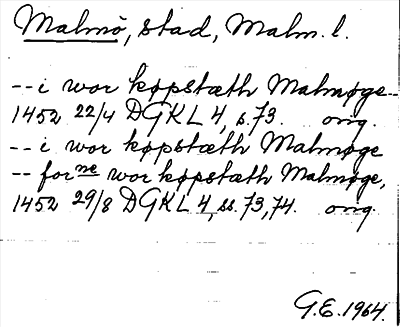 Malmö, stad, Malm. l.
-- i wor køpstæth Malmøge --
1452 22/4 DGKL 4, s. 73. orig.
-- i wor køpstæth Malmøge
-- forne wor køpstæth Malmøge,
1452 29/8 DGKL 4, ss. 73, 74. orig.
G.E. 1964.